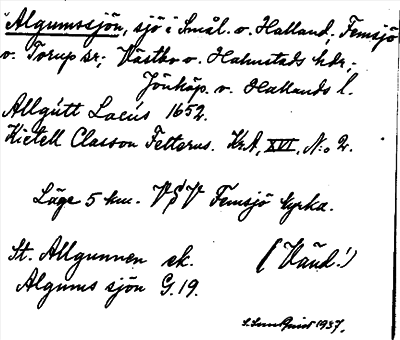 Algumssjön, sjö i Smål. o. Halland; Femsjö
o. Torup sr; Västbo o. Halmstads hdr;
Jönköp. o. Hallands l.
Allgutt Lacus 1652.
Kietell Classon Felterus. KrA, XVI, N:o 2.
Läge 5 km. VSV Femsjö kyrka.
St. Allgunnen ek. (Vänd!)
Algums sjön G. 19.
1937.